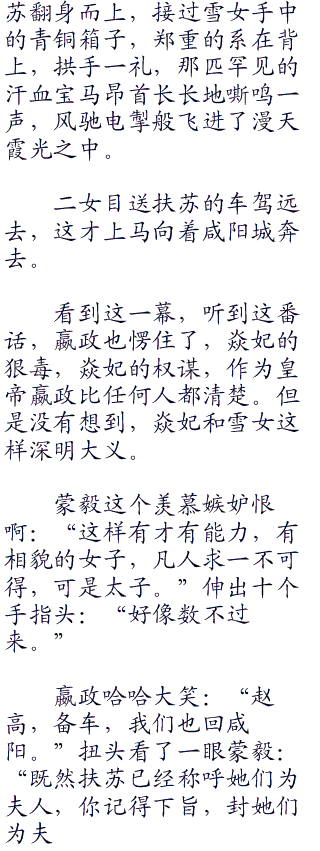 苏翻身而上，接过雪女手中
的青铜箱子，郑重的系在背
上，拱手一礼，那匹罕见的
汗血宝马昂首长长地嘶鸣一
声，风驰电掣般飞进了漫天
霞光之中。
二女目送扶苏的车驾远
去，这才上马向着咸阳城奔
去。
看到这一幕，听到这番
话，嬴政也愣住了，焱妃的
狠毒，焱妃的权谋，作为皇
帝嬴政比任何人都清楚。但
是没有想到，焱妃和雪女这
样深明大义。
蒙毅这个羡慕嫉妒恨
啊：“这样有才有能力，有
相貌的女子，凡人求一不可
得，可是太子。”伸出十个
手指头：“好像数不过
来。”
嬴政哈哈大笑：“赵
高，备车，我们也回咸
阳。”扭头看了一眼蒙毅：
“既然扶苏已经称呼她们为
夫人，你记得下旨，封她们
为夫